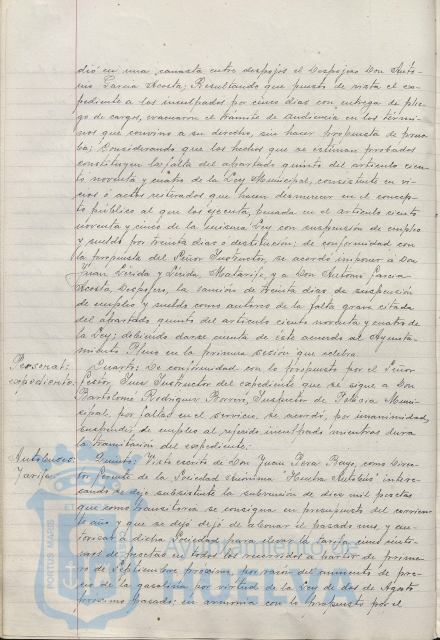 dió en una canasta entre despojos el Despojero Don Anto-
nio Garcia Acosta; Resultando que puesto de vista el ex-
pediente a los inculpados por cinco dias con entrega de plie-
go de cargos, evacuaron el tramite de audiencia en los térmi-
nos que convino a su derecho, sin hacer propuesta de prue-
ba; Considerando que los hechos que se estiman probados
constituyen la falta del apartado quinto del articulo cien-
to noventa y cuatro de la Ley Municipal, consistente en vi-
cios ó actos reiterados que hacen desmerecer en el concep-
to público al que los ejecuta, penada en el articulo ciento
noventa y cinco de la misma Ley con suspensión de empleo
y sueldo por treinta dias o destitución; de conformidad con
la propuesta del Señor Instructor, se acordó imponer á Don
Juan Matarife, y a Don Antonio Garcia
Acosta, Despojero, la sanción de treinta dias de suspensión
de empleo y sueldo como autores de la falta grave citada
del apartado quinto del articulo ciento noventa y cuatro de
la Ley; debiendo darse cuenta de este acuerdo al Ayunta-
miento Pleno en la primera sesión que celebre.
Personal: Cuarto: De conformidad con lo propuesto por el Señor
expediente. Gestor, Juez Instructor del expediente que se sigue a Don
Bartolomé Rodriguez Borrero, Inspector de Policia Muni-
cipal, por faltas en el servicio, se acordó, por unanimidad,
suspender de empleo al referido inculpado mientras dura
la tramitación del expediente.
Autobuses: Quinto: Visto escrito de Don Juan Pera como Direc-
Tarifa. tor Gerente de la Sociedad Anonima "Huelva Autobus" intere-
sando se deje subsistente la subvención de diez mil pesetas
que como transitoria se consigna en presupuesto del corrien-
te año y que se dejó de abonar el pasado mes, y au-
torizar a dicha Sociedad para elevar la tarifa cinco cénti-
mos de peseta en todos los recorridos a partir de prime-
ro de Septiembre próximo, por razón del aumento de pre-
cio de la gasolina por virtud de la Ley de dos de Agosto
próximo pasado; en armonia con lo propuesto por el
PORTUS MARIS ET
Ayuntamiento de
HUELVA